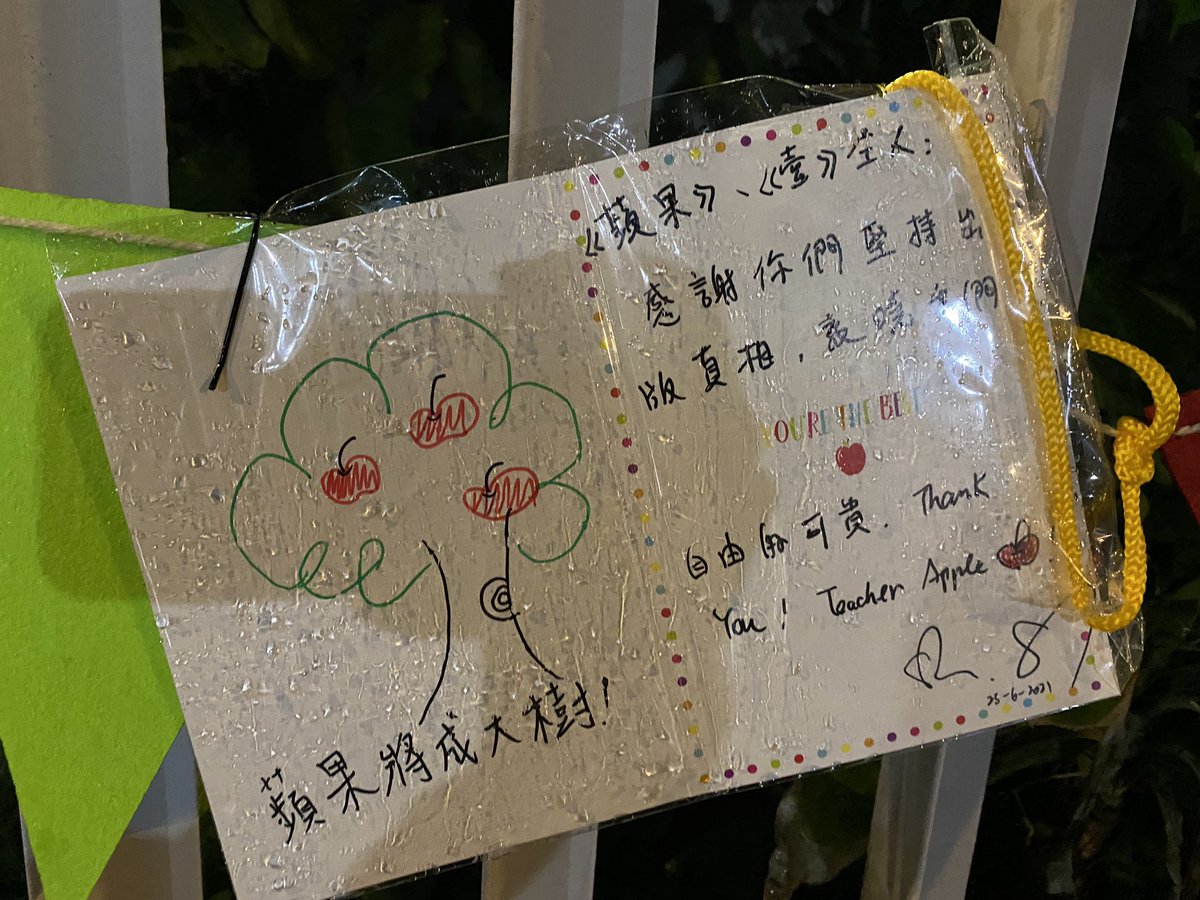 蘋果將成大樹!
《蘋果》、《壹》全人:
感謝你們堅持出
版真相,教曉我們
YOU'RE THE BEST
自由的可貴. Thank
You! Teacher Apple
25-6-2021